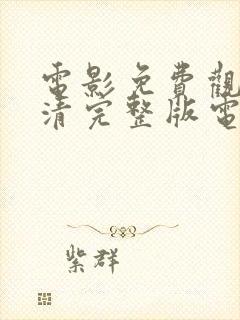 電影免費觀
清完整版電
紫群